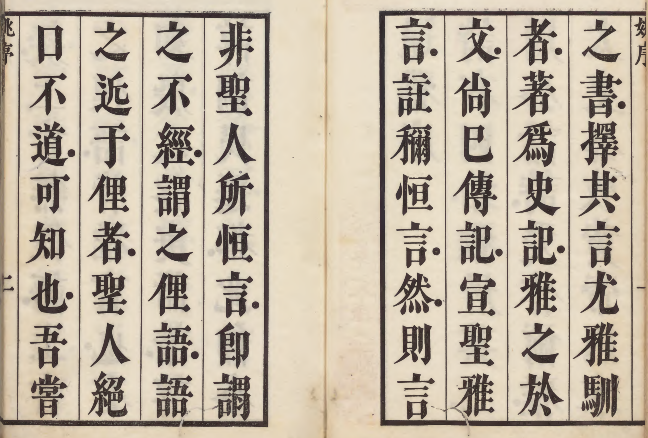 之書擇其言尤雅馴
者著爲史記雅之於
文尙巳傳記宣聖雅
言註稱恒言然則言
非聖人所恒言卽謂
之不經謂之俚語語
之近于俚者聖人絕
口不道可知也吾嘗
二